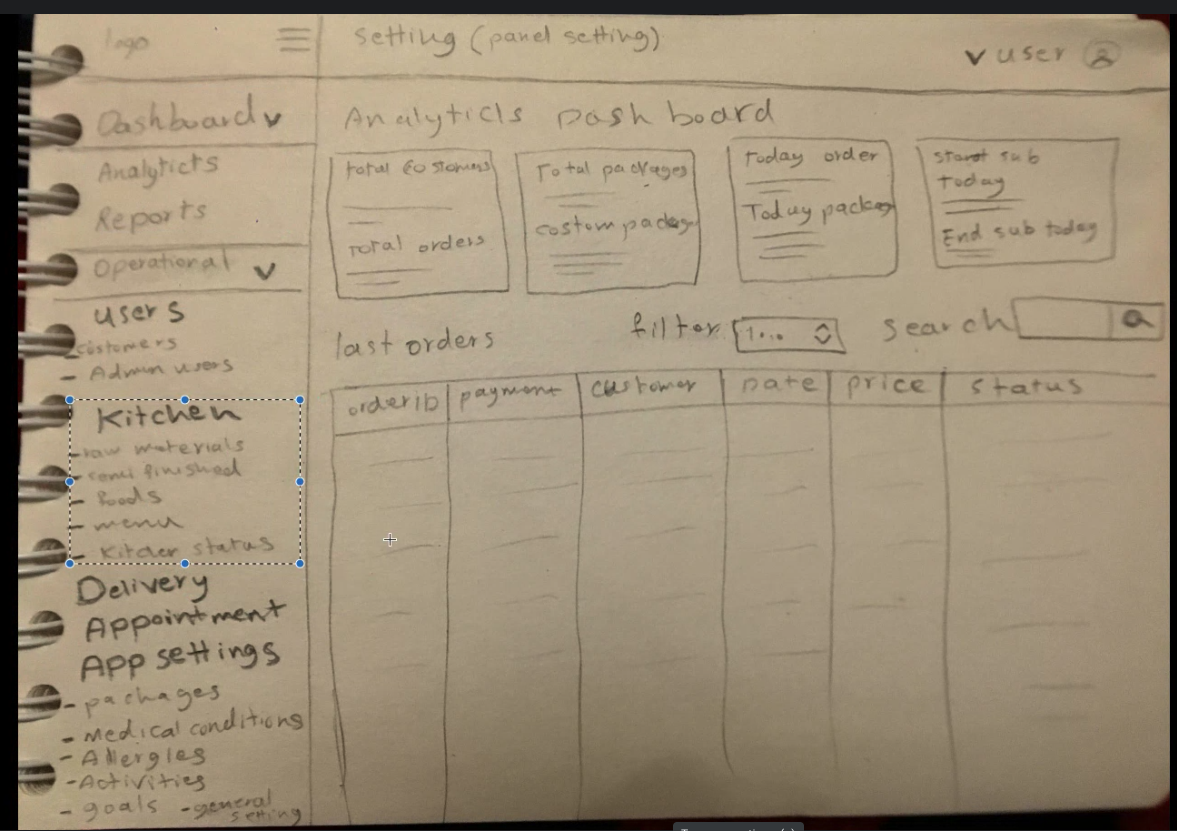 logo
setting (panel setting)
v user
Dashboard v
Analyticts
Reports
Operational v
users
- costomers
- Admin users
Kitchen
- raw materials
- semi finished
- foods
- menu
- Kitcher status
Delivery
Appointment
App settings
- pachages
- medical conditions
- Allergies
- Activities
- goals - general setting
Analyticls Dash board
total Costomers
Total orders
Total packages
costom packag
Today order
Today packag
Starst sub
today
End sub today
last orders
filter 1...
search
order ID payment customer Date price status